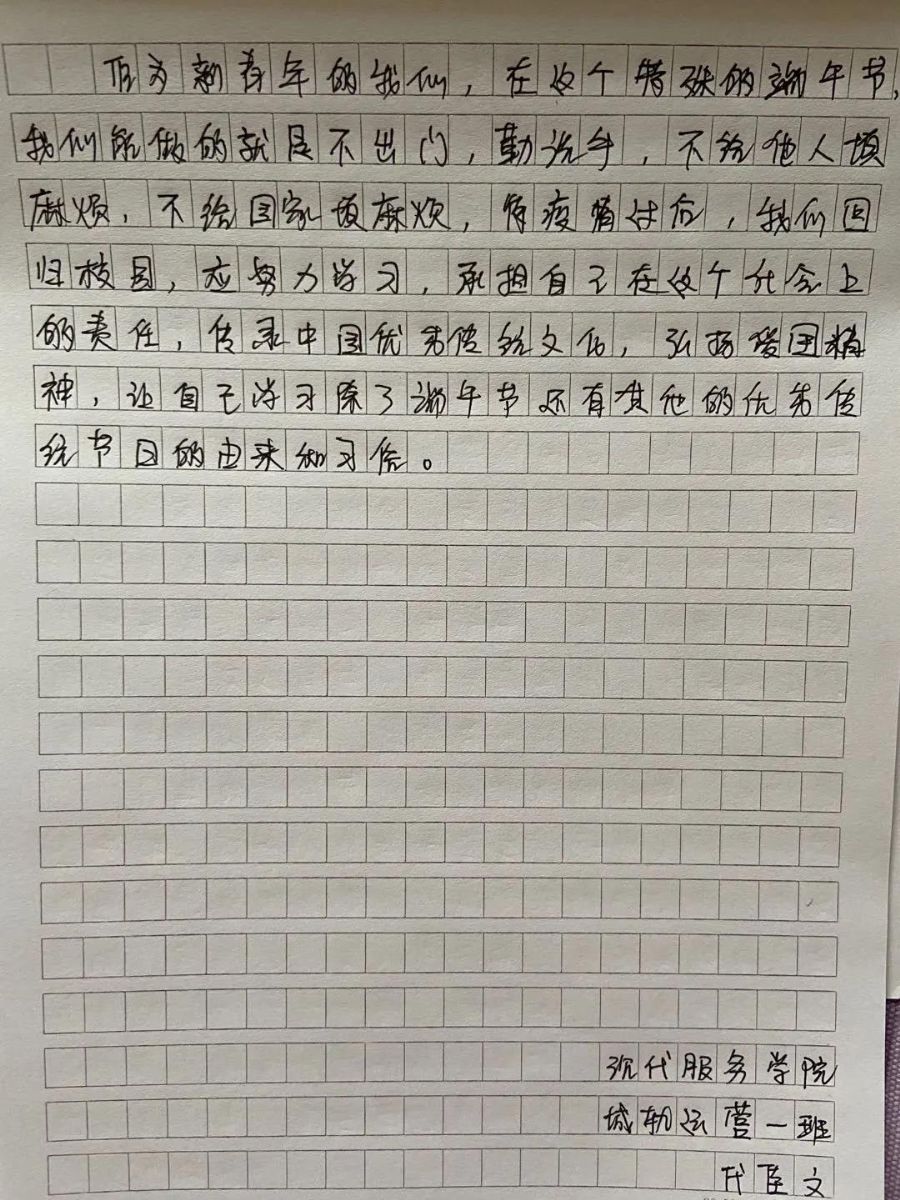 作为新青年的我们，在这个特殊的端午节，
我们能做的就是不出门，勤洗手，不给他人填
麻烦，不给国家填麻烦，等疫情过后，我们回
归校园，应努力学习，承担自己在这个社会上
的责任，传录中国优秀传统文化，弘扬爱国精
神，让自己学习除了端午节还有其他的优秀传
统节日的由来和习俗。
现代服务学院
城轨运营一班
代 文